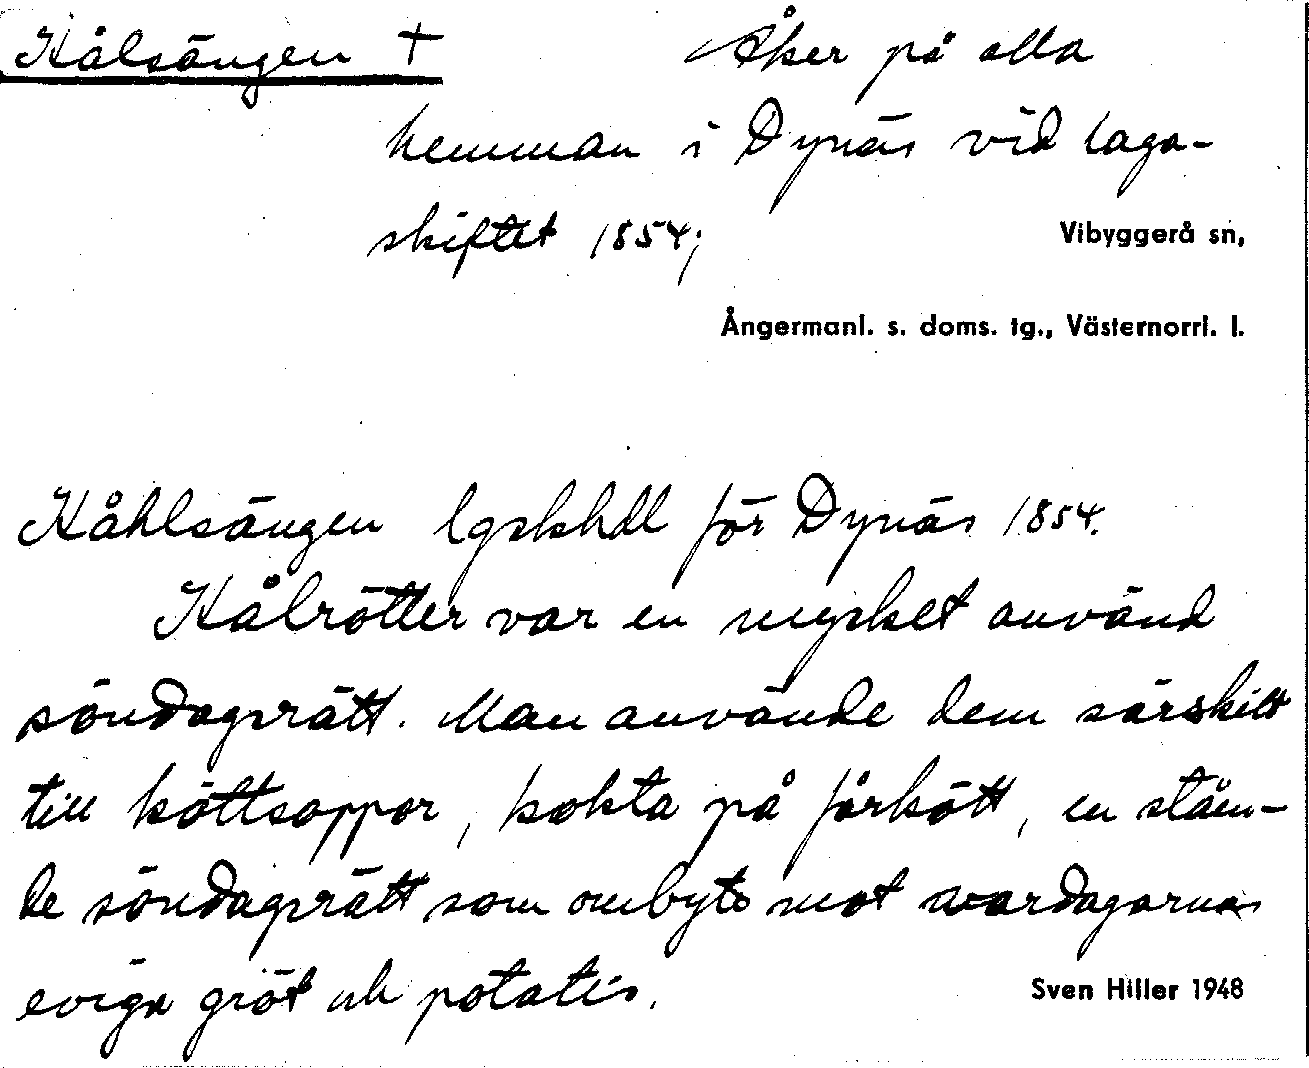 Kålsängen +
Åker på alla
hemman i Dynäs vid laga-
skiftet 1854;
Vibyggerå sn,
Ångermanl. s. doms. tg., Västernorrl. l.
Kåhlsängen lgskhdl för Dynäs 1854.
Kålrötter var en mycket använd
söndagsrätt. Man använde dem särskilt
till köttsoppor, kokta på fårkött, en ståen-
de söndagsrätt som ombyte mot vardagarnas
eviga gröt och potatis.
Sven Hiller 1948